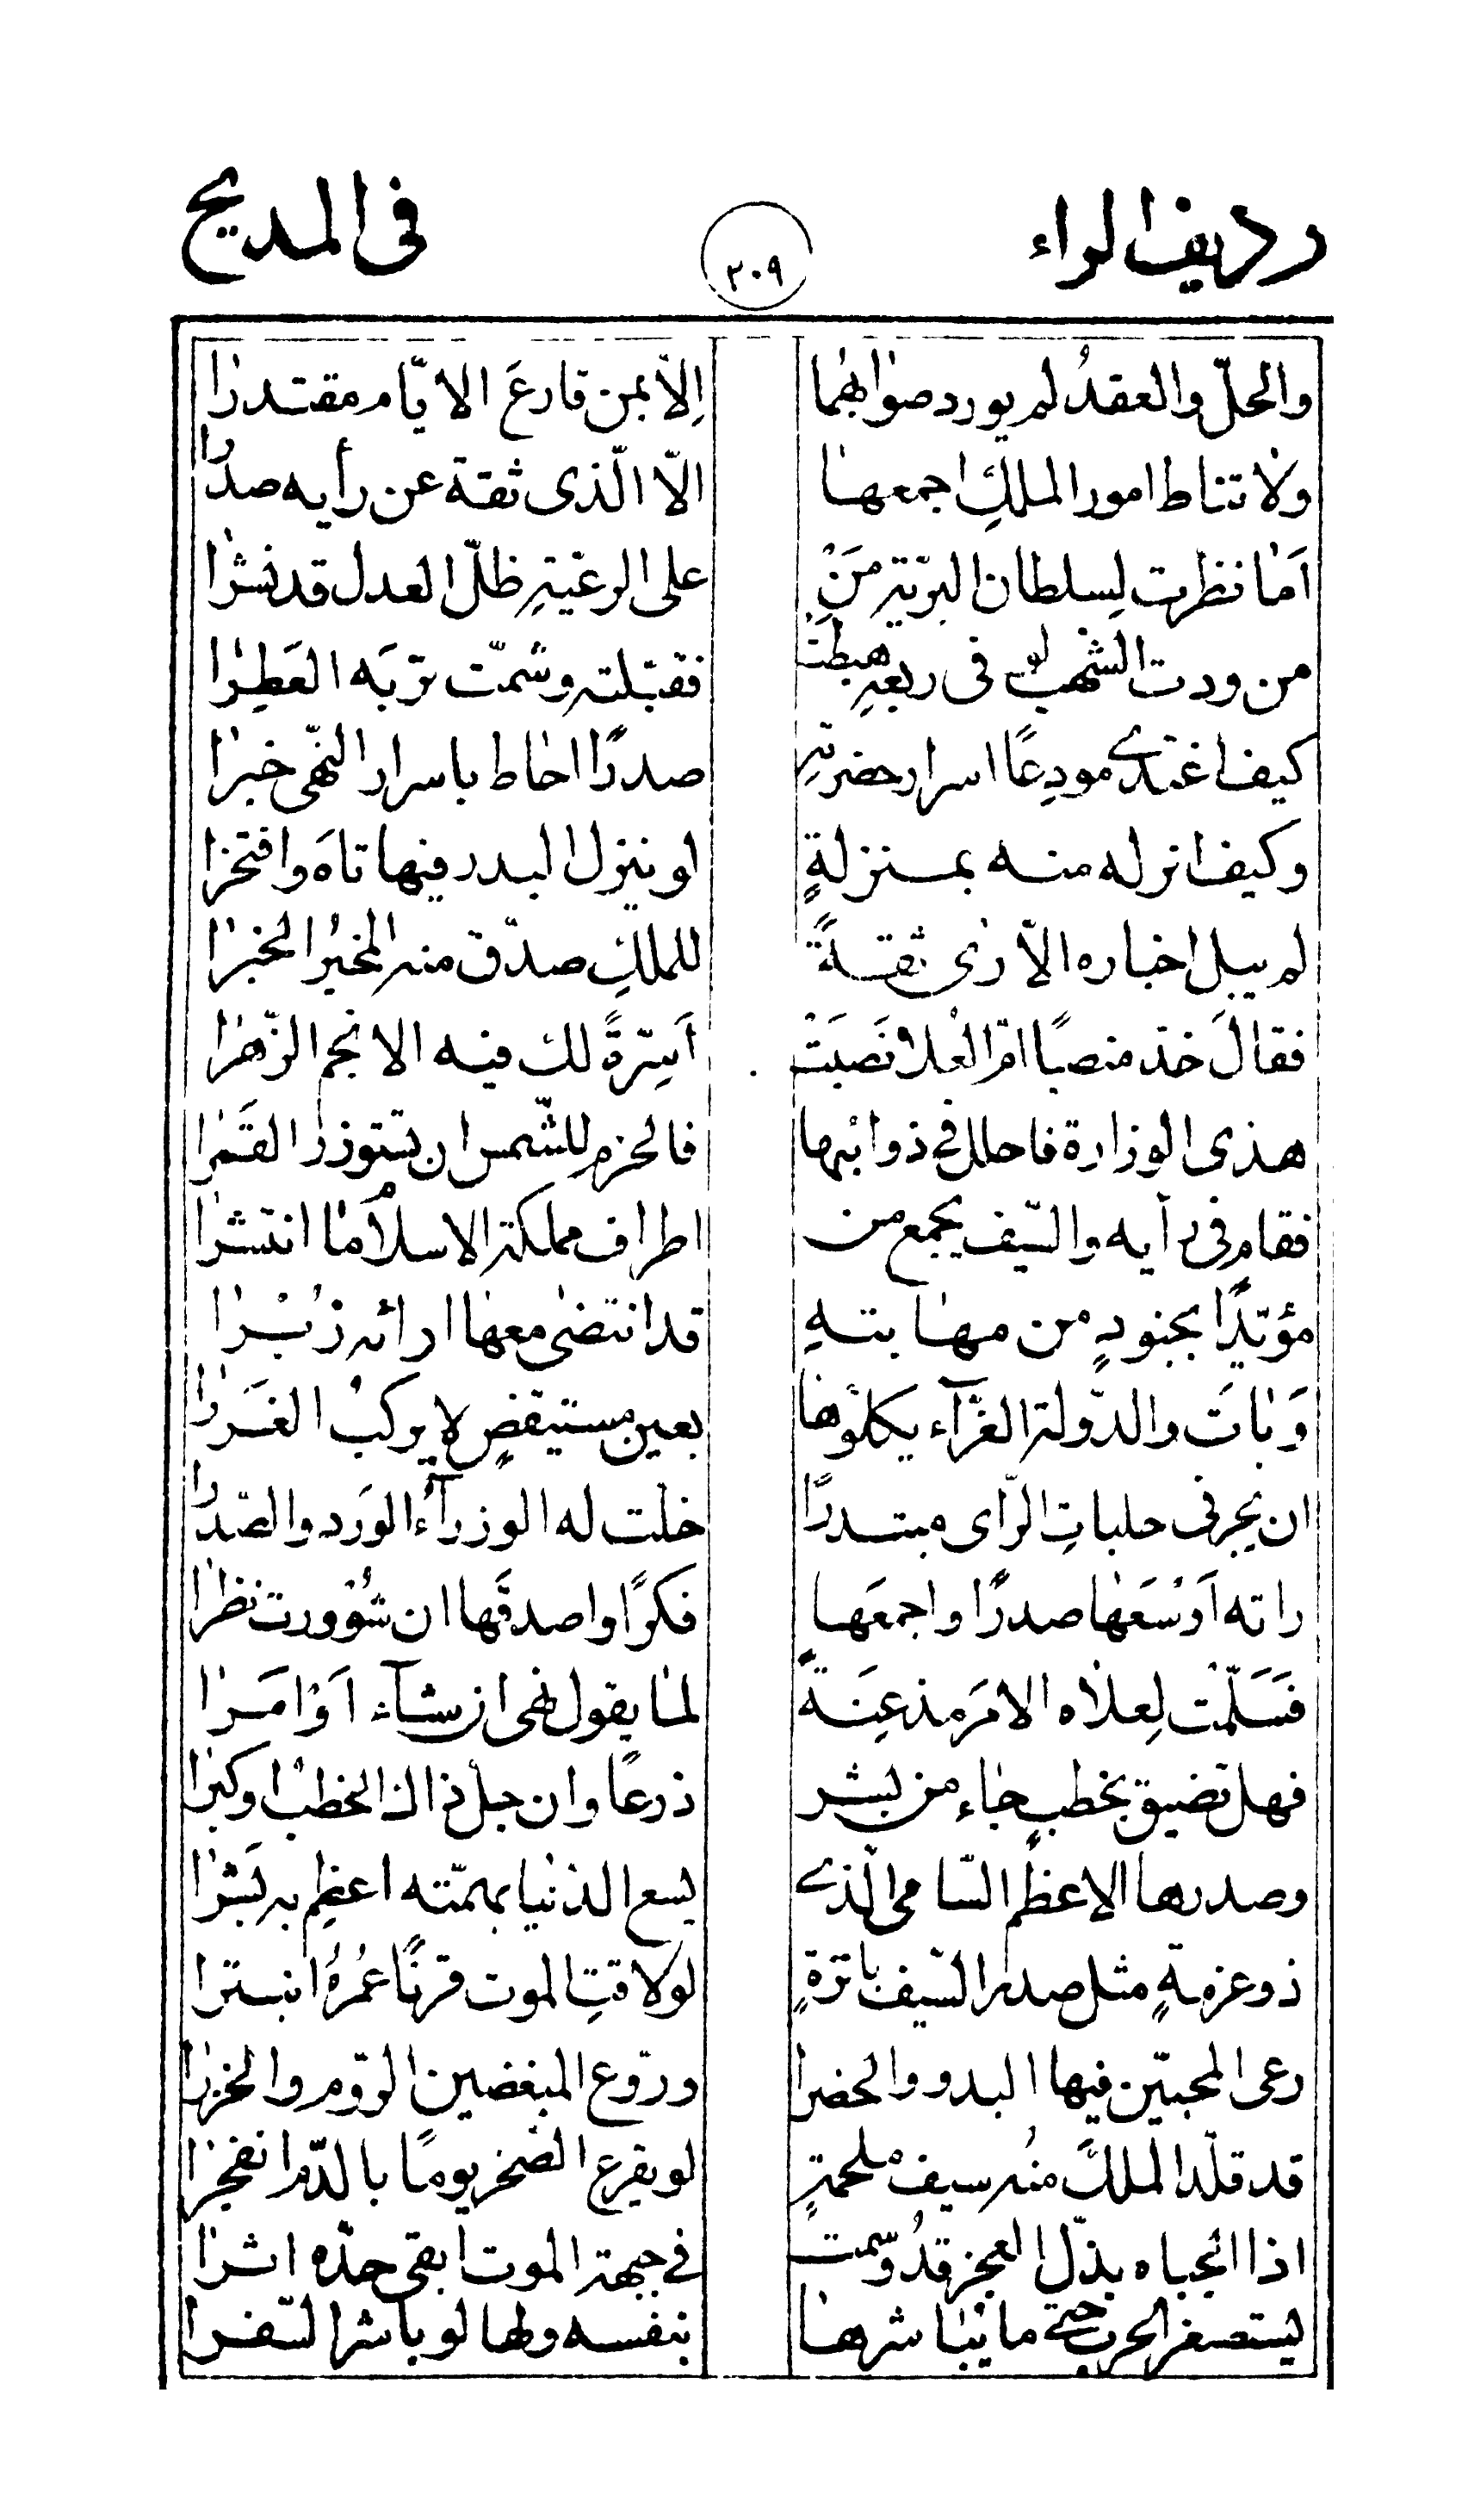 رديف الراء ٣٠٩ فى المديح
والحلّ والعقدُ لم يورد صوابهما الاّ بمن قارعَ الايّام مقتدرا
ولا تناط امور الملكِ اجمعها الاّ الّذى ثقة عن رأيه صدرا
اَما نظرت لِسلطان البريّةِ مَنْ على الرعيّةِ ظلّ العدل قد نشرا
من ودت الشهب لو فى ربعهِ هبطَتْ فقبّلته وشمّت تربَه العَطِرا
كيف اغتدى مودِعًا اسرار حضرتِهِ صدرًا احاط باسرار النّهى خبرا
وكيف انزله منه بمنزلةٍ لو ينزل البدر فيها تاهَ وافتخرا
لم يبل اخباره الاّ رأى ثقةً للملكِ صدّق منه المخبرُ الخبرا
فقالَ خذ منصبًا امّ العُلا نَصبَتْ اَسِرّةً لك فيه الانجم الزّهرا
هذى الوزارة فاحلل فى ذوائبها فالحزم للشّمس ان تستوزرَ القَمَرا
فقام فى رأيه والسّيف يجمع من اطراف مملكة الاسلام ما انتشرا
مؤيّدًا بجنودٍ من مهابتهِ قد انتضى معها ارائه زُبُرا
وَباتَ والدّولة الغرّآء يكلؤها بعين مستيقضٍ لا يركبُ الغَررا
ان يجر فى حلباتِ الرّأى مبتدرًا خلّت له الوزرآءُ الوَرد والصّدرا
راته اَوْسَعَها صدرًا واجمعَها فكرًا واصدقَها ان شُوورت نظرا
فَسَلّمتْ لِعلاه الامَر مذعِنَةً لما يقول نهى ان شآء اَوْ امَرا
فهل تضيق بخطبٍ جاء من بشر ذرعًا وان جلّ ذاك الخطبُ او كبرا
وصدرها الاعظم السّامى الّذى يسع الدّنيا بهمّته اعظِم به بَشرا
ذو عزمةٍ مثل صدر السّيف باترةٍ لو لاقتِ الموت قرنًا عُمرهُ انبترا
رعى المحبّين فيها البدو والحضرا وروّع المبغضين الرّوم والخزرا
قد قلّد الملكَ منُه سيف ملحمةٍ لو يقرع الصّخر يومًا بالدّم انفجرا
اذا الجباه بذلّ العجز قد وُسّمت فى جبهة الموت ابقى حدّه اثرا
ليستصغر الحرب حتى ما يباشرها بنفسه ولها لو باشر السّفرا